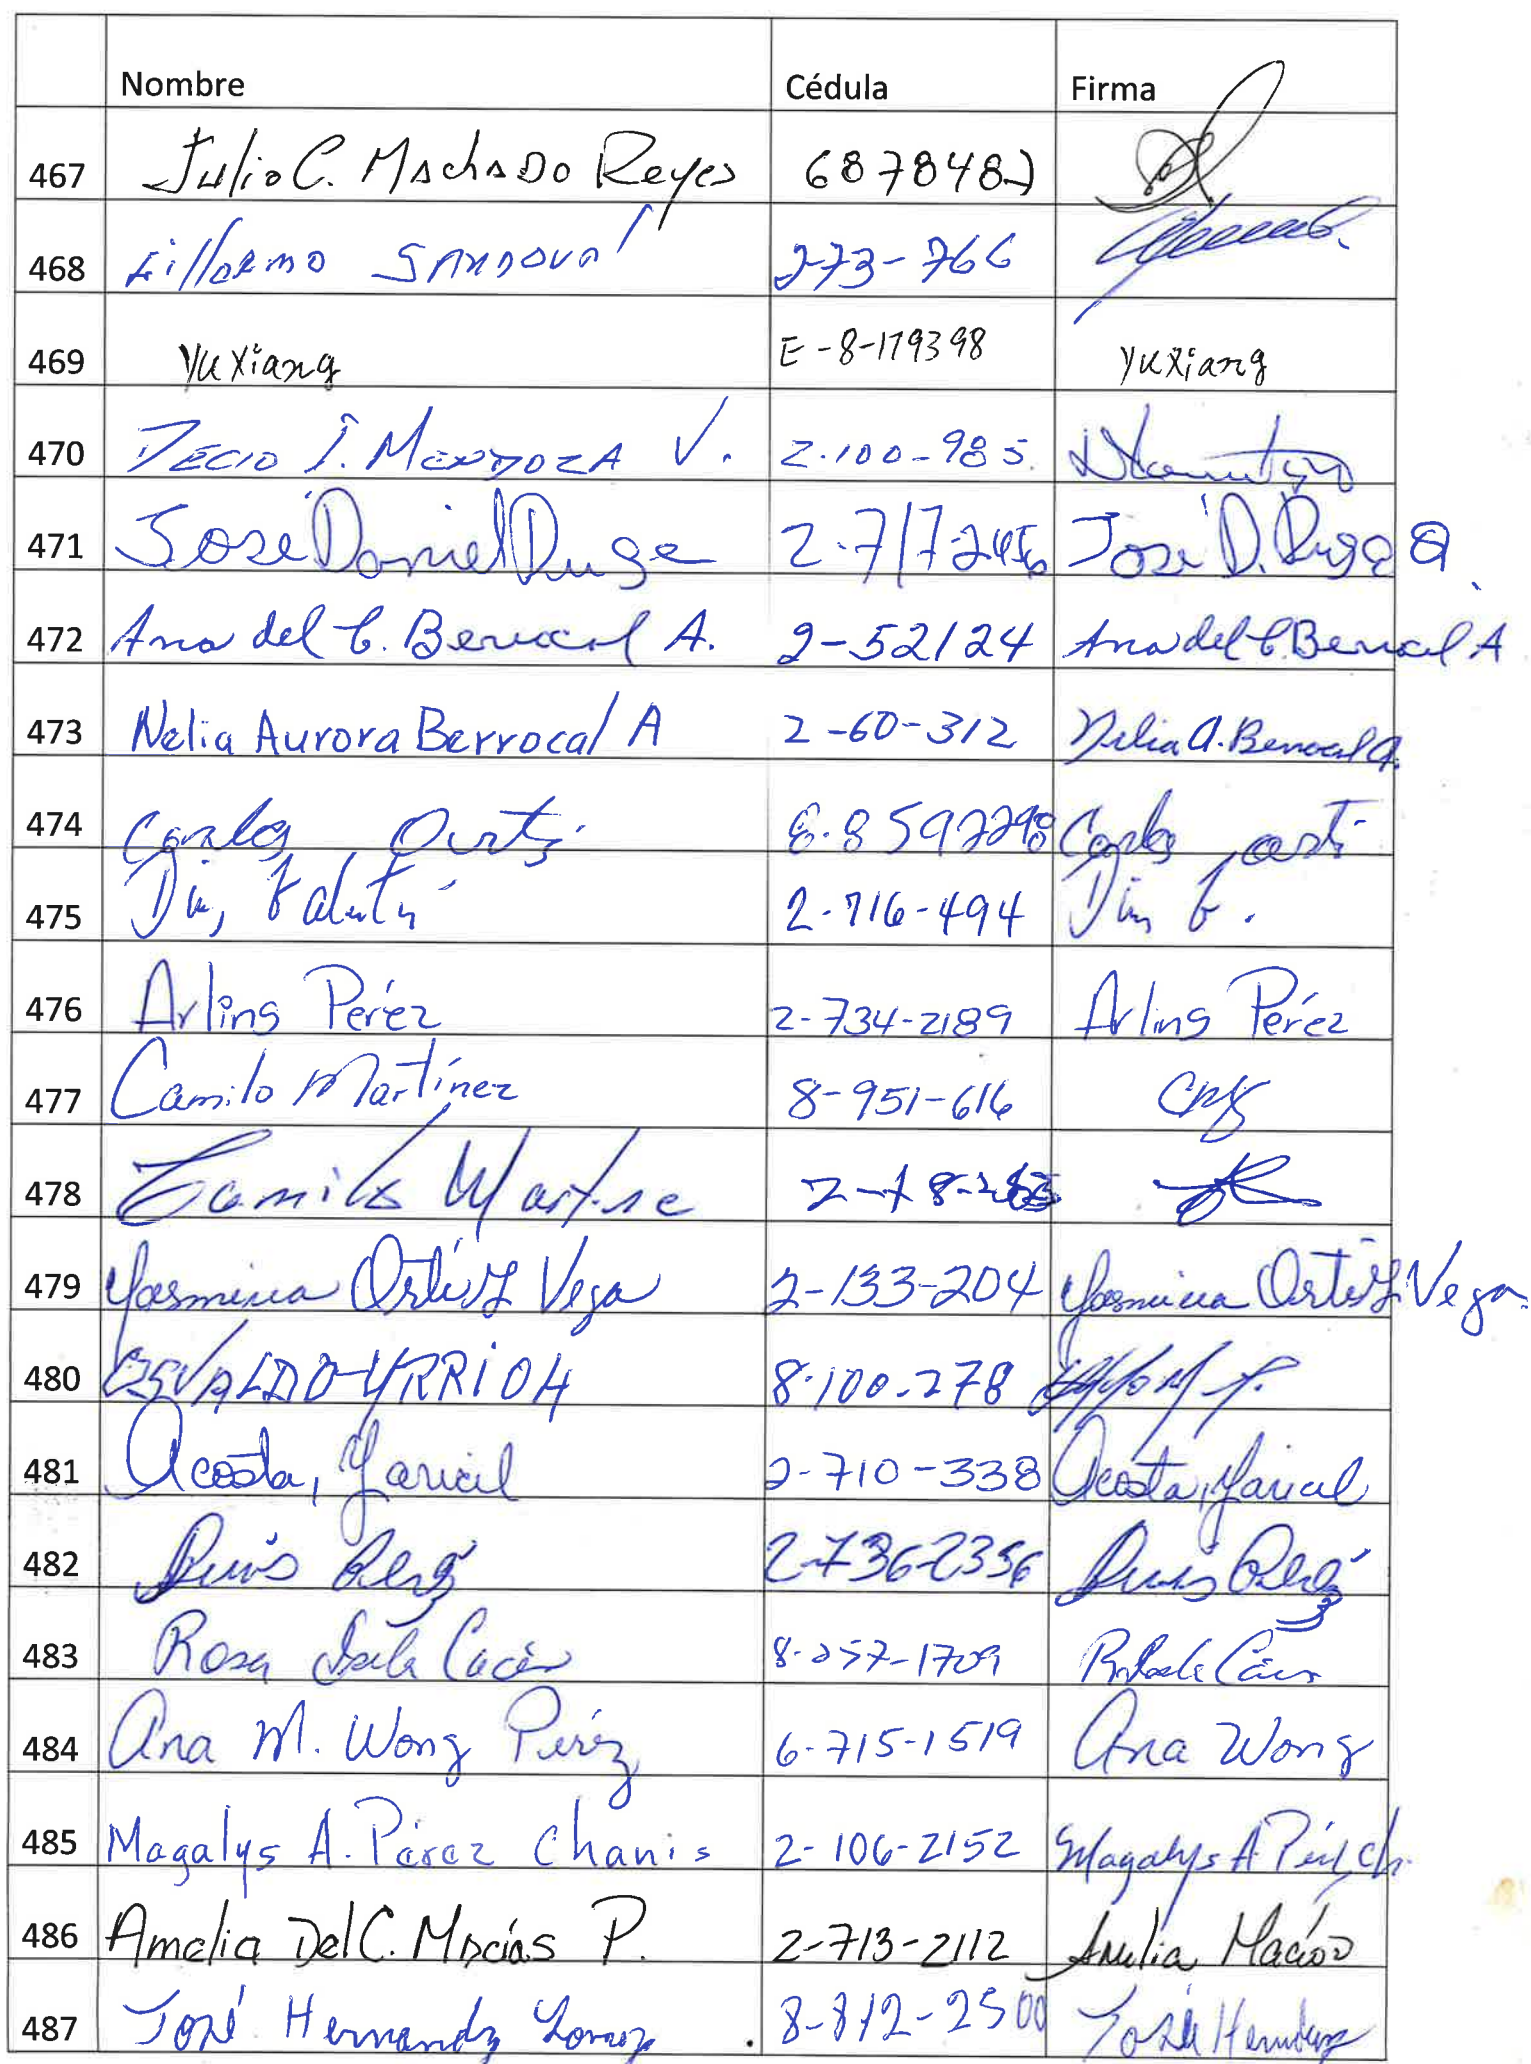 Nombre Cédula Firma
467 Julio C. Machado Reyes 6878482
468 Gillermo Sandoval 2-73-766
469 Yu Xiang E-8-179398 Yu Xiang
470 Decio I. Mendoza V. 2.100-985
471 Jose Daniel Ruge 2-717-2456 Jose D. Ruge
472 Ana del C. Berrocal A. 2-52124 Ana del C. Berrocal A
473 Nelia Aurora Berrocal A 2-60-312 Nelia A. Berrocal A.
474 Carlos Carlos
475 2-716-494
476 Arling Pérez 2-734-2189 Arling Pérez
477 Camilo Martínez 8-951-616
478 Camilo
479 Yasmina Ortiz Vega 2-133-204 Yasmina Ortiz Vega
480 OSVALDO 8-100-278
481 Acosta, Yaricel 2-710-338 Acosta, Yaricel
482 2-736-2356
483 Rosa 8-257-1709
484 Ana M. Wong Pérez 6-715-1519 Ana Wong
485 Magalys A. Pérez Chanis 2-106-2152 Magalys A Ch.
486 Amelia Del C. Macías P. 2-713-2112 Amelia Macías
487 José Hernandz 8-812-2500 José